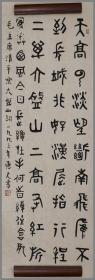 天高雲淡望斷南飛雁不
到長城非好漢屈指行程
二萬六盤山上高峰紅旗
漫卷西風今日長纓在手何時縛住蒼龍
毛主席清平樂六盤山詞一九九三年